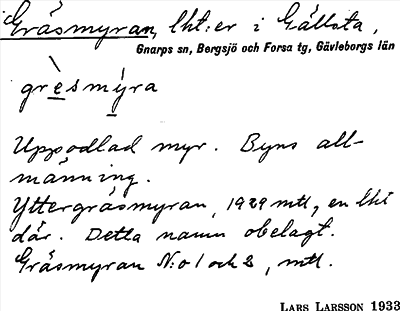 Gräsmyran, lht:er i Gällsta,
Gnarps sn, Bergsjö och Forsa tg, Gävleborgs län
grèsmýra
Uppodlad myr. Byns all-
männing.
Yttergräsmyran, 1929 mtl, en lht
där. Detta namn obelagt.
Gräsmyran N:o 1 och 2, mtl.
LARS LARSSON 1933